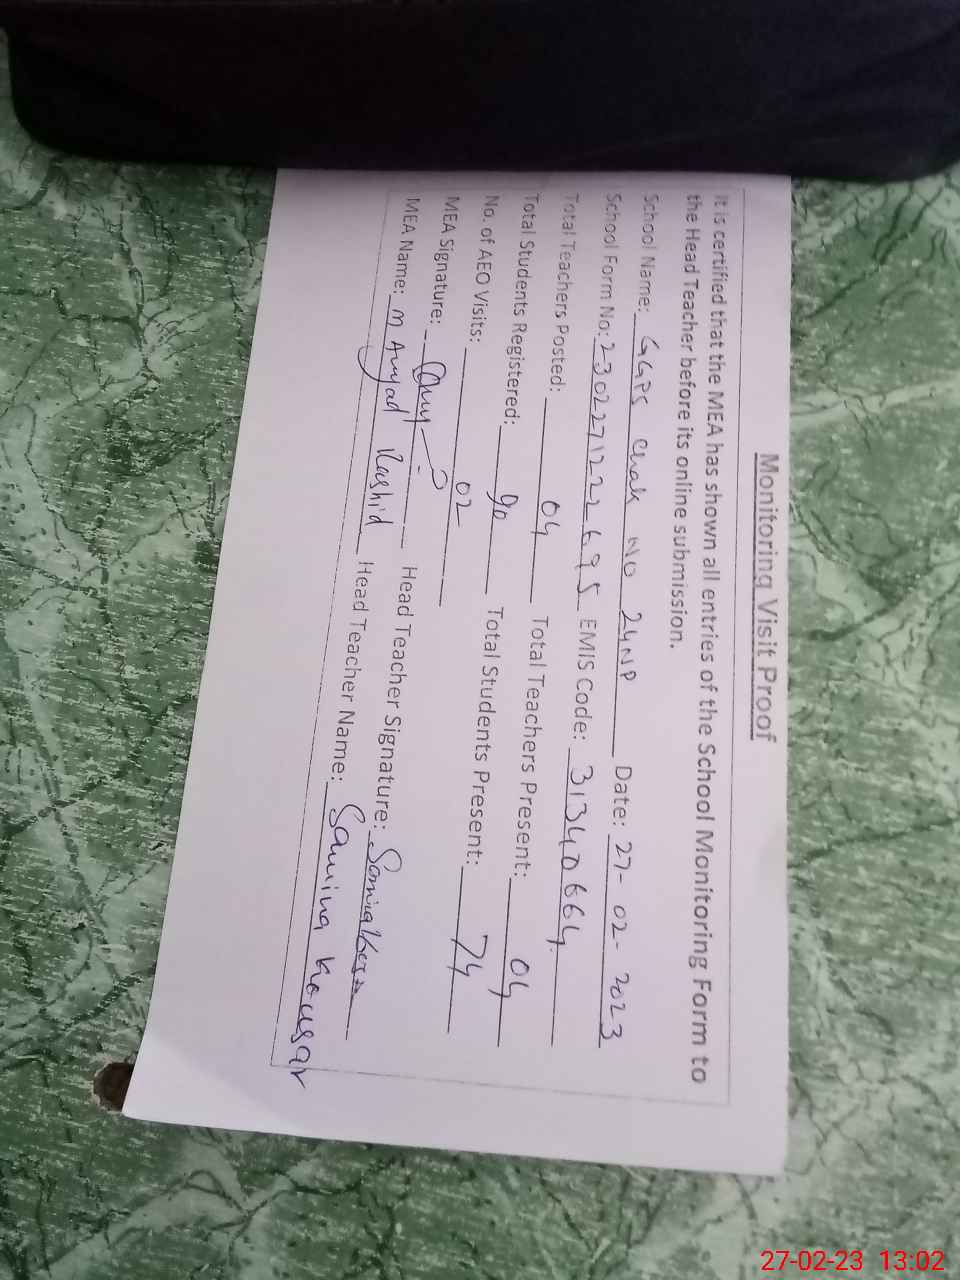 Monitoring Visit Proof
It is certified that the MEA has shown all entries of the School Monitoring Form to
the Head Teacher before its online submission.
School Name: GGPS Chak NO 24NP Date: 27-02-2023
School Form No: 230227122695 EMIS Code: 31340664
Total Teachers Posted: 04 Total Teachers Present: 04
Total Students Registered: 90 Total Students Present: 74
No. of AEO Visits: 02
MEA Signature: Head Teacher Signature:
MEA Name: M Amjad Rashid Head Teacher Name: Samina Kousar
27-02-23 13:02